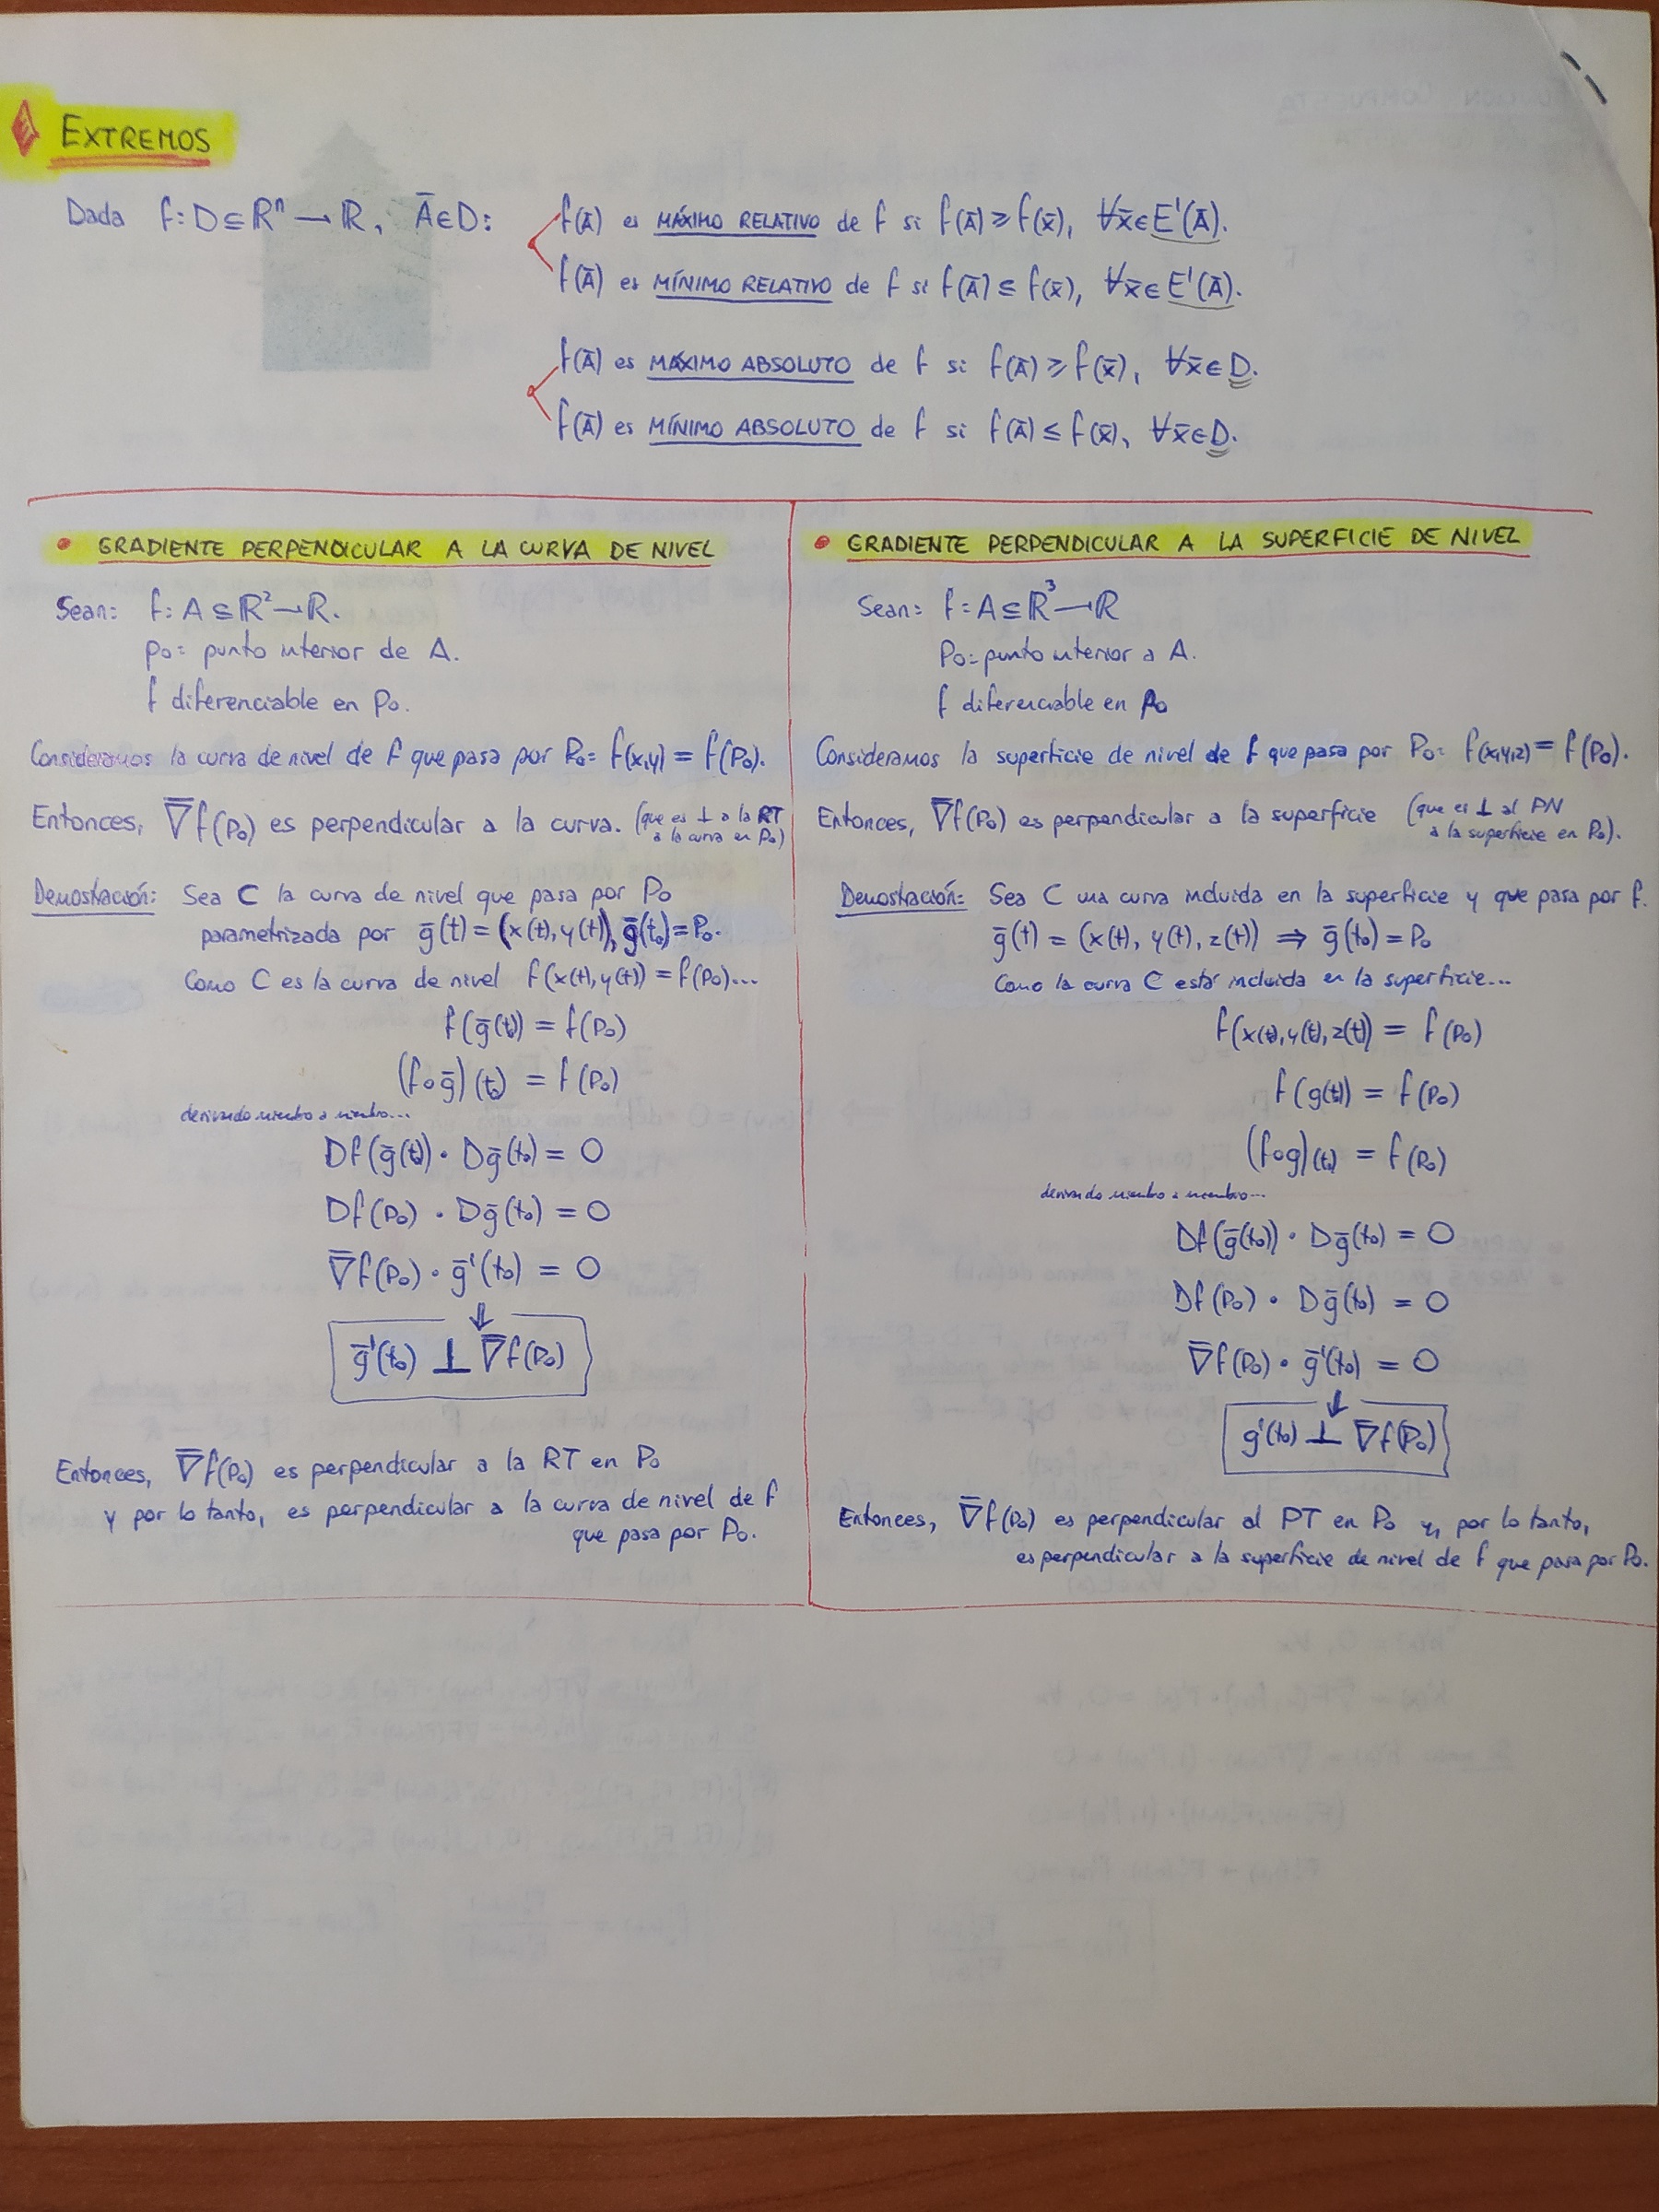 EXTREMOS
Dada f: D ⊆ ℝⁿ → ℝ, Ā ∈ D:
f(Ā) es MÁXIMO RELATIVO de f si f(Ā) ≥ f(x̄), ∀x̄ ∈ E'(Ā).
f(Ā) es MÍNIMO RELATIVO de f si f(Ā) ≤ f(x̄), ∀x̄ ∈ E'(Ā).
f(Ā) es MÁXIMO ABSOLUTO de f si f(Ā) ≥ f(x̄), ∀x̄ ∈ D.
f(Ā) es MÍNIMO ABSOLUTO de f si f(Ā) ≤ f(x̄), ∀x̄ ∈ D.
• GRADIENTE PERPENDICULAR A LA CURVA DE NIVEL
Sean: f: A ⊆ ℝ² → ℝ.
P₀= punto interior de A.
f diferenciable en P₀.
Consideramos la curva de nivel de f que pasa por P₀= f(x,y) = f(P₀).
Entonces, ∇̄f(P₀) es perpendicular a la curva. (que es ⊥ a la RT
a la curva en P₀)
Demostración: Sea C la curva de nivel que pasa por P₀
parametrizada por ḡ(t) = (x(t), y(t)), ḡ(t₀) = P₀.
Como C es la curva de nivel f(x(t), y(t)) = f(P₀)...
f(ḡ(t)) = f(P₀)
(f∘ḡ)(t₀) = f(P₀)
derivando miembro a miembro...
Df(ḡ(t₀)) · Dḡ(t₀) = 0
Df(P₀) · Dḡ(t₀) = 0
∇̄f(P₀) · ḡ'(t₀) = 0
↓
ḡ'(t₀) ⊥ ∇̄f(P₀)
Entonces, ∇̄f(P₀) es perpendicular a la RT en P₀
y por lo tanto, es perpendicular a la curva de nivel de f
que pasa por P₀.
• GRADIENTE PERPENDICULAR A LA SUPERFICIE DE NIVEL
Sean: f: A ⊆ ℝ³ → ℝ
P₀= punto interior a A.
f diferenciable en P₀
Consideramos la superficie de nivel de f que pasa por P₀= f(x,y,z) = f(P₀).
Entonces, ∇̄f(P₀) es perpendicular a la superficie (que es ⊥ al PN
a la superficie en P₀).
Demostración: Sea C una curva incluida en la superficie y que pasa por f.
ḡ(t) = (x(t), y(t), z(t)) ⇒ ḡ(t₀) = P₀
Como la curva C está incluida en la superficie...
f(x(t), y(t), z(t)) = f(P₀)
f(g(t)) = f(P₀)
(f∘g)(t) = f(P₀)
derivando miembro a miembro...
Df(ḡ(t₀)) · Dḡ(t₀) = 0
Df(P₀) · Dḡ(t₀) = 0
∇̄f(P₀) · ḡ'(t₀) = 0
↓
g'(t₀) ⊥ ∇̄f(P₀)
Entonces, ∇̄f(P₀) es perpendicular al PT en P₀ y, por lo tanto,
es perpendicular a la superficie de nivel de f que pasa por P₀.